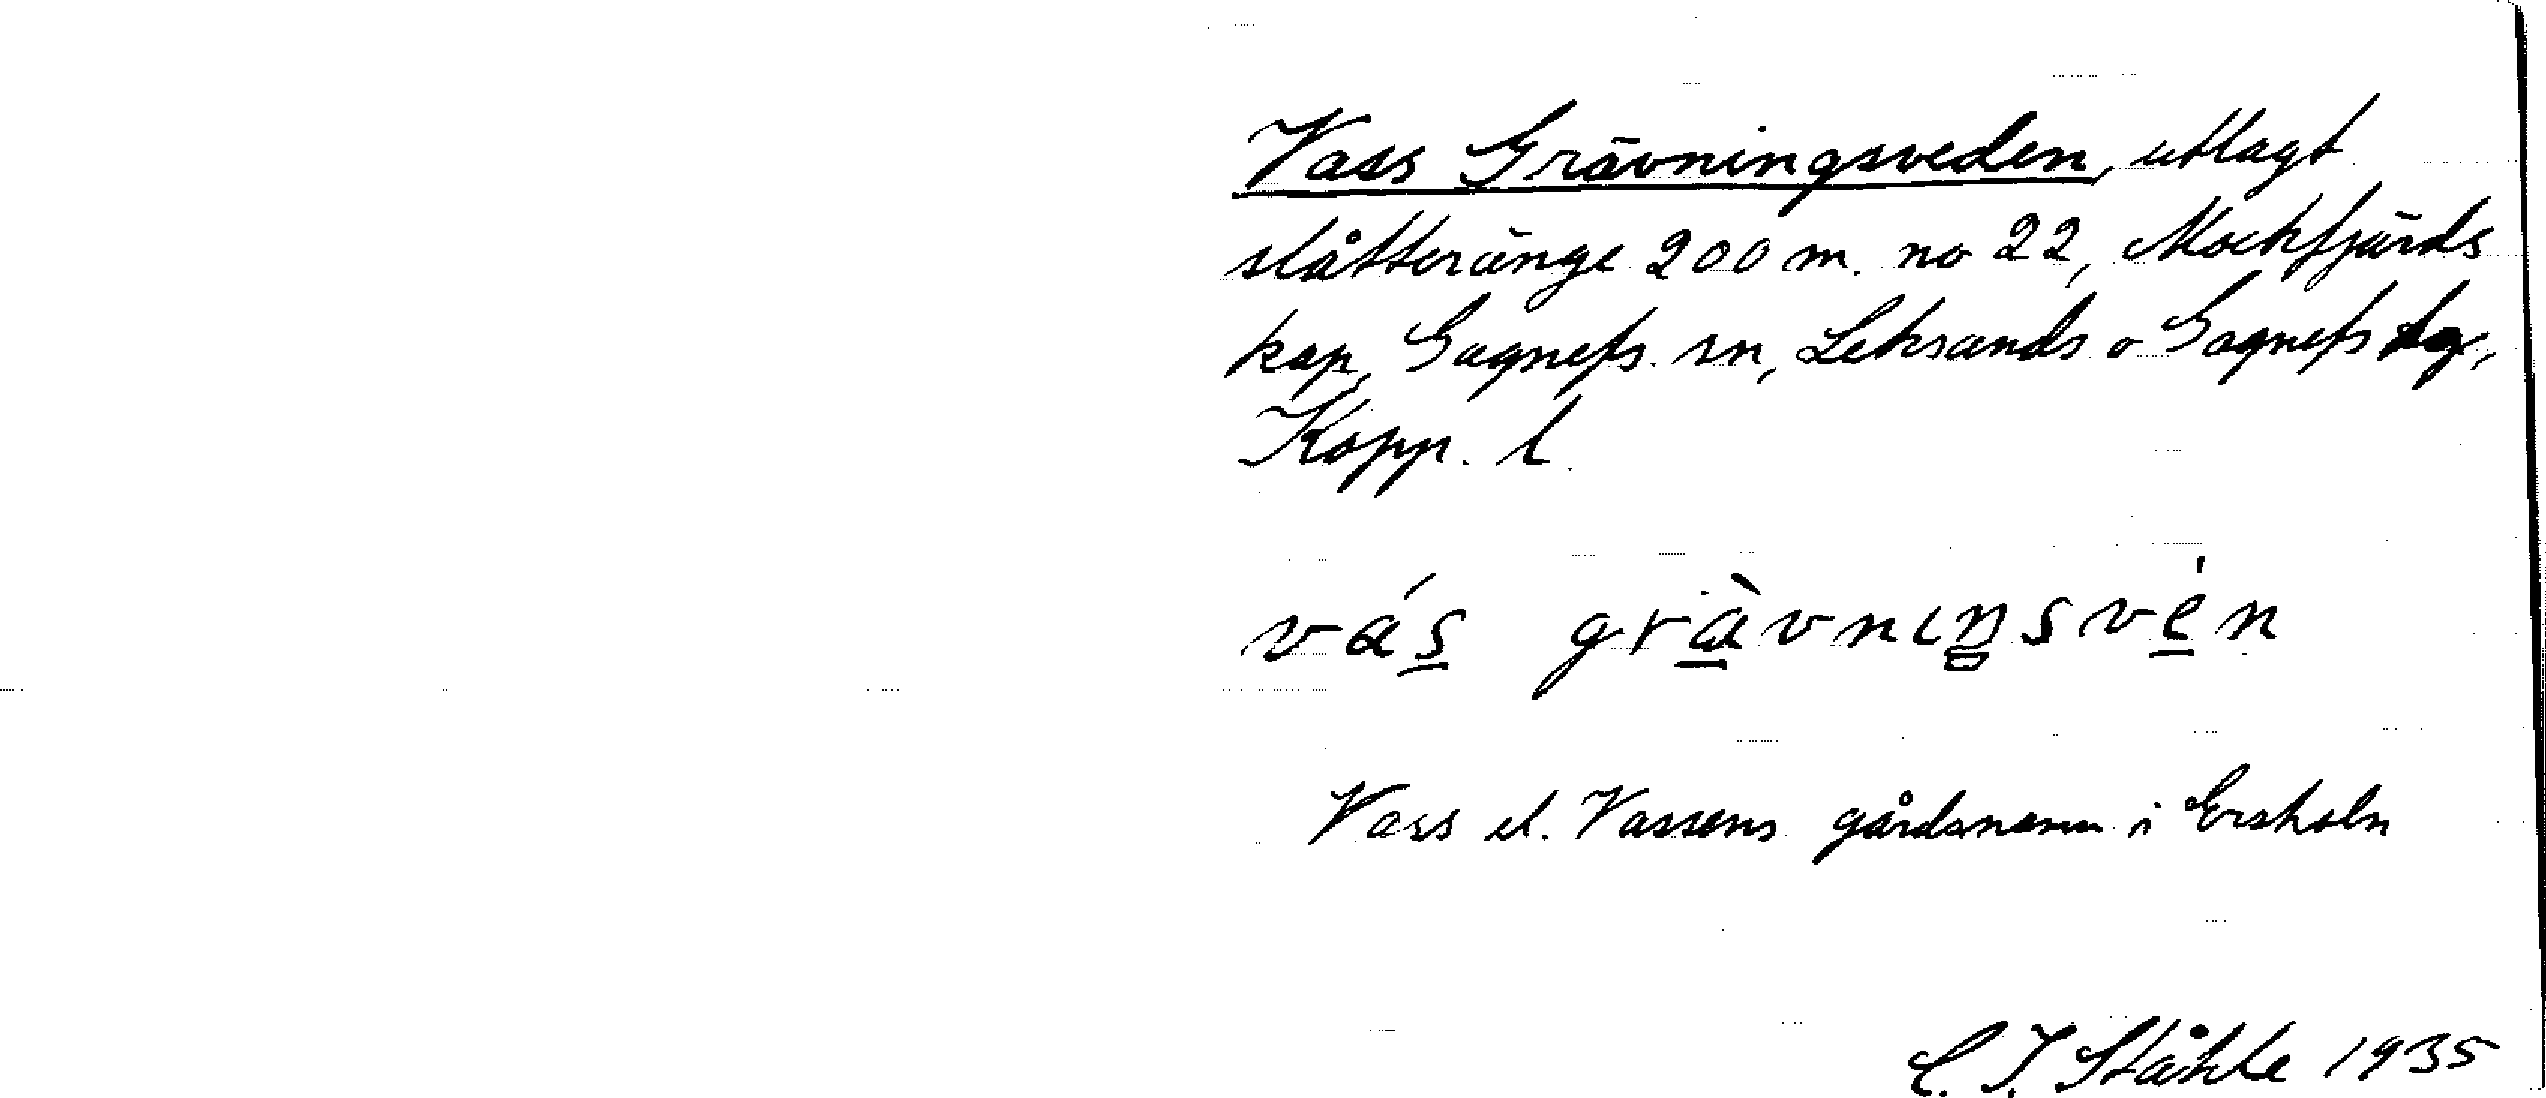 Vass Grävningsveden, utlagt
slåtteränge 200 m. no 22, Mockfjärds
kap, Gagnefs sn, Leksands o Gagnefs tg,
Kopp. l.
vás grävnıŋsvén
Vass el. Vassens gårdsnamn i Ersholn
C. I. Ståhle 1935